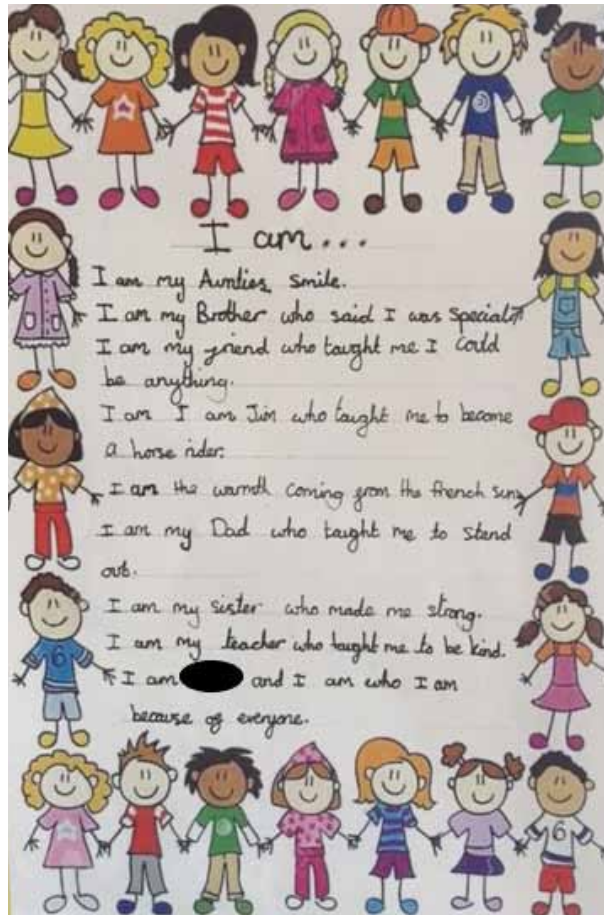 I am...
I am my Aunties smile.
I am my Brother who said I was special.
I am my friend who taught me I could
be anything.
I am I am Jim who taught me to become
a horse rider.
I am the warmth coming from the french sun.
I am my Dad who taught me to stand
out.
I am my sister who made me strong.
I am my teacher who taught me to be kind.
I am and I am who I am
because of everyone.
6
6